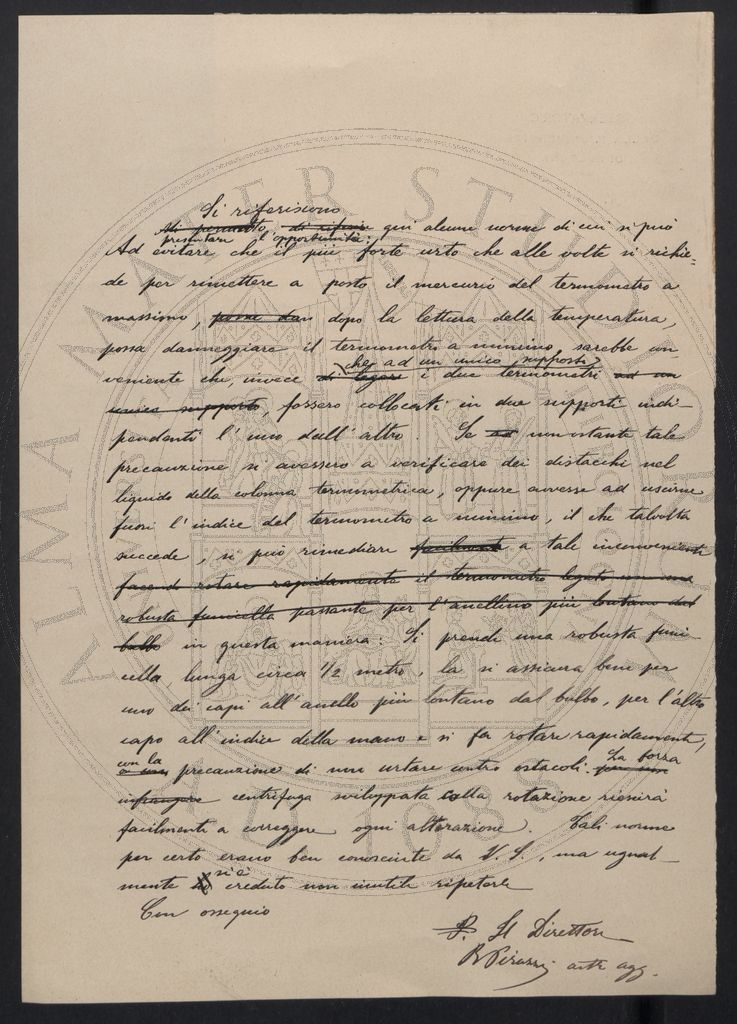 Si riferiscono
di permesso, di riferire qui alcune norme di cui si può
presentare l'opportunità:
Ad evitare che il più forte urto che alle volte si richie=
de per rimettere a posto il mercurio del termometro a
massimo, possa dan dopo la lettura della temperatura,
possa danneggiare il termometro a minimo sarebbe con
che ad un unico supporto
veniente che, invece di legare i due termometri ad un
unico supporto, fossero collocati in due supporti indi-
pendenti l'uno dall'altro. Se ad nonostante tale
precauzione si avessero a verificare dei distacchi nel
liquido della colonna termometrica, oppure avesse ad uscirne
fuori l'indice del termometro a minimo, il che talvolta
succede, si può rimediare facilmente a tale inconveniente
facendo rotare rapidamente il termometro legato con una
robusta funicella passante per l'anellino più lontano dal
bulbo in questa maniera: Si prende una robusta funi-
cella, lunga circa 1/2 metro, la si assicura bene per
uno dei capi all'anello più lontano dal bulbo, per l'altro
capo all'indice della mano e si fa rotare rapidamente,
con la precauzione di non urtare contro ostacoli. La forza
infrangere centrifuga sviluppata colla rotazione riescirà
facilmente a correggere ogni alterazione. Tali norme
per certo erano ben conosciute da V. S., ma ugual-
mente si è creduto non inutile ripeterle
Con ossequio
P. Il Direttore
R Pirazzi astr agg.
ALMA MATER STUDIORUM
A.D. 1088